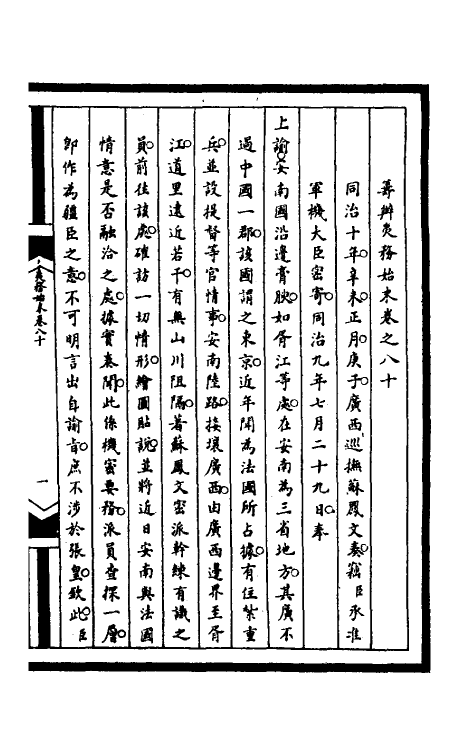 籌辦夷務始末卷之八十
同治十年辛未正月庚子廣西巡撫蘇鳳文奏竊臣承准
軍機大臣密寄同治九年七月二十九日奉
上諭安南國沿邊膏腴如胥江等處在安南為三省地方其廣不
過中國一郡該國謂之東京近年聞為法國所占據有住紮重
兵並設提督等官情事安南陸路接壤廣西由廣西邊界至胥
江道里遠近若干有無山川阻隔著蘇鳳文密派幹練有識之
員前往該處確訪一切情形繪圖貼說並將近日安南與法國
情意是否融洽之處據實奏聞此係機密要務派員查探一層
即作為疆臣之意不可明言出自諭旨庶不涉於張皇致此臣
夷務始末卷八十
一